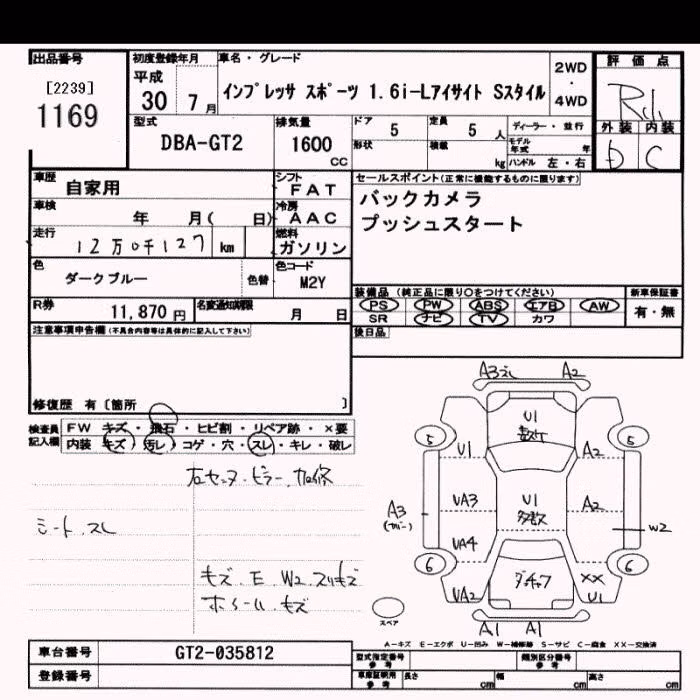 出品番号
[2239]
1169
初度登録年月
平成
30 7 月
車名・グレード
インプレッサ スポーツ 1.6i-Lアイサイト Sスタイル
2WD
・
4WD
評価点
外装 内装
D C
型式
DBA-GT2
排気量
1600
CC
ドア 5
定員 5 人
ディーラー・並行
形状
積載
kg
モデル年式 年
ハンドル 左・右
車歴 自家用
シフト
FAT
車検 年 月( 日)
冷房
AAC
走行 12万0千127 km
燃料
ガソリン
色 ダークブルー
色替
色コード
M2Y
R券 11,870 円
名変通知期限 月 日
セールスポイント(正常に機能するものに限ります)
バックカメラ
プッシュスタート
装備品 (純正品に限り〇をつけてください)
新車保証書
PS PW ABS エアB AW
SR ナビ TV カワ
有・無
後日品
注意事項申告欄(不具合内容等は具体的に記入して下さい)
修復歴 有〔箇所 〕
検査員
記入欄
FW キズ・飛石・ヒビ割・リペア跡・×要
内装 キズ・汚レ・コゲ・穴・スレ・キレ・破レ
右センターピラー加修
シート.スレ
キズ.E.W2.スリキズ
ホイールキズ
A2
U1
5
5
U1
A2
UA3
U1
多数
A2
A3
(カバー)
W2
UA4
6
6
UA2
XX
U1
スペア
A1 A1
A-キズ E-エクボ U-凹み W-補修跡 S-サビ C-腐食 XX-交換済
車台番号 GT2-035812
登録番号
型式指定番号
参考
類別区分番号
参考
車庫証明用
参考
長さ cm
幅 cm
高さ cm